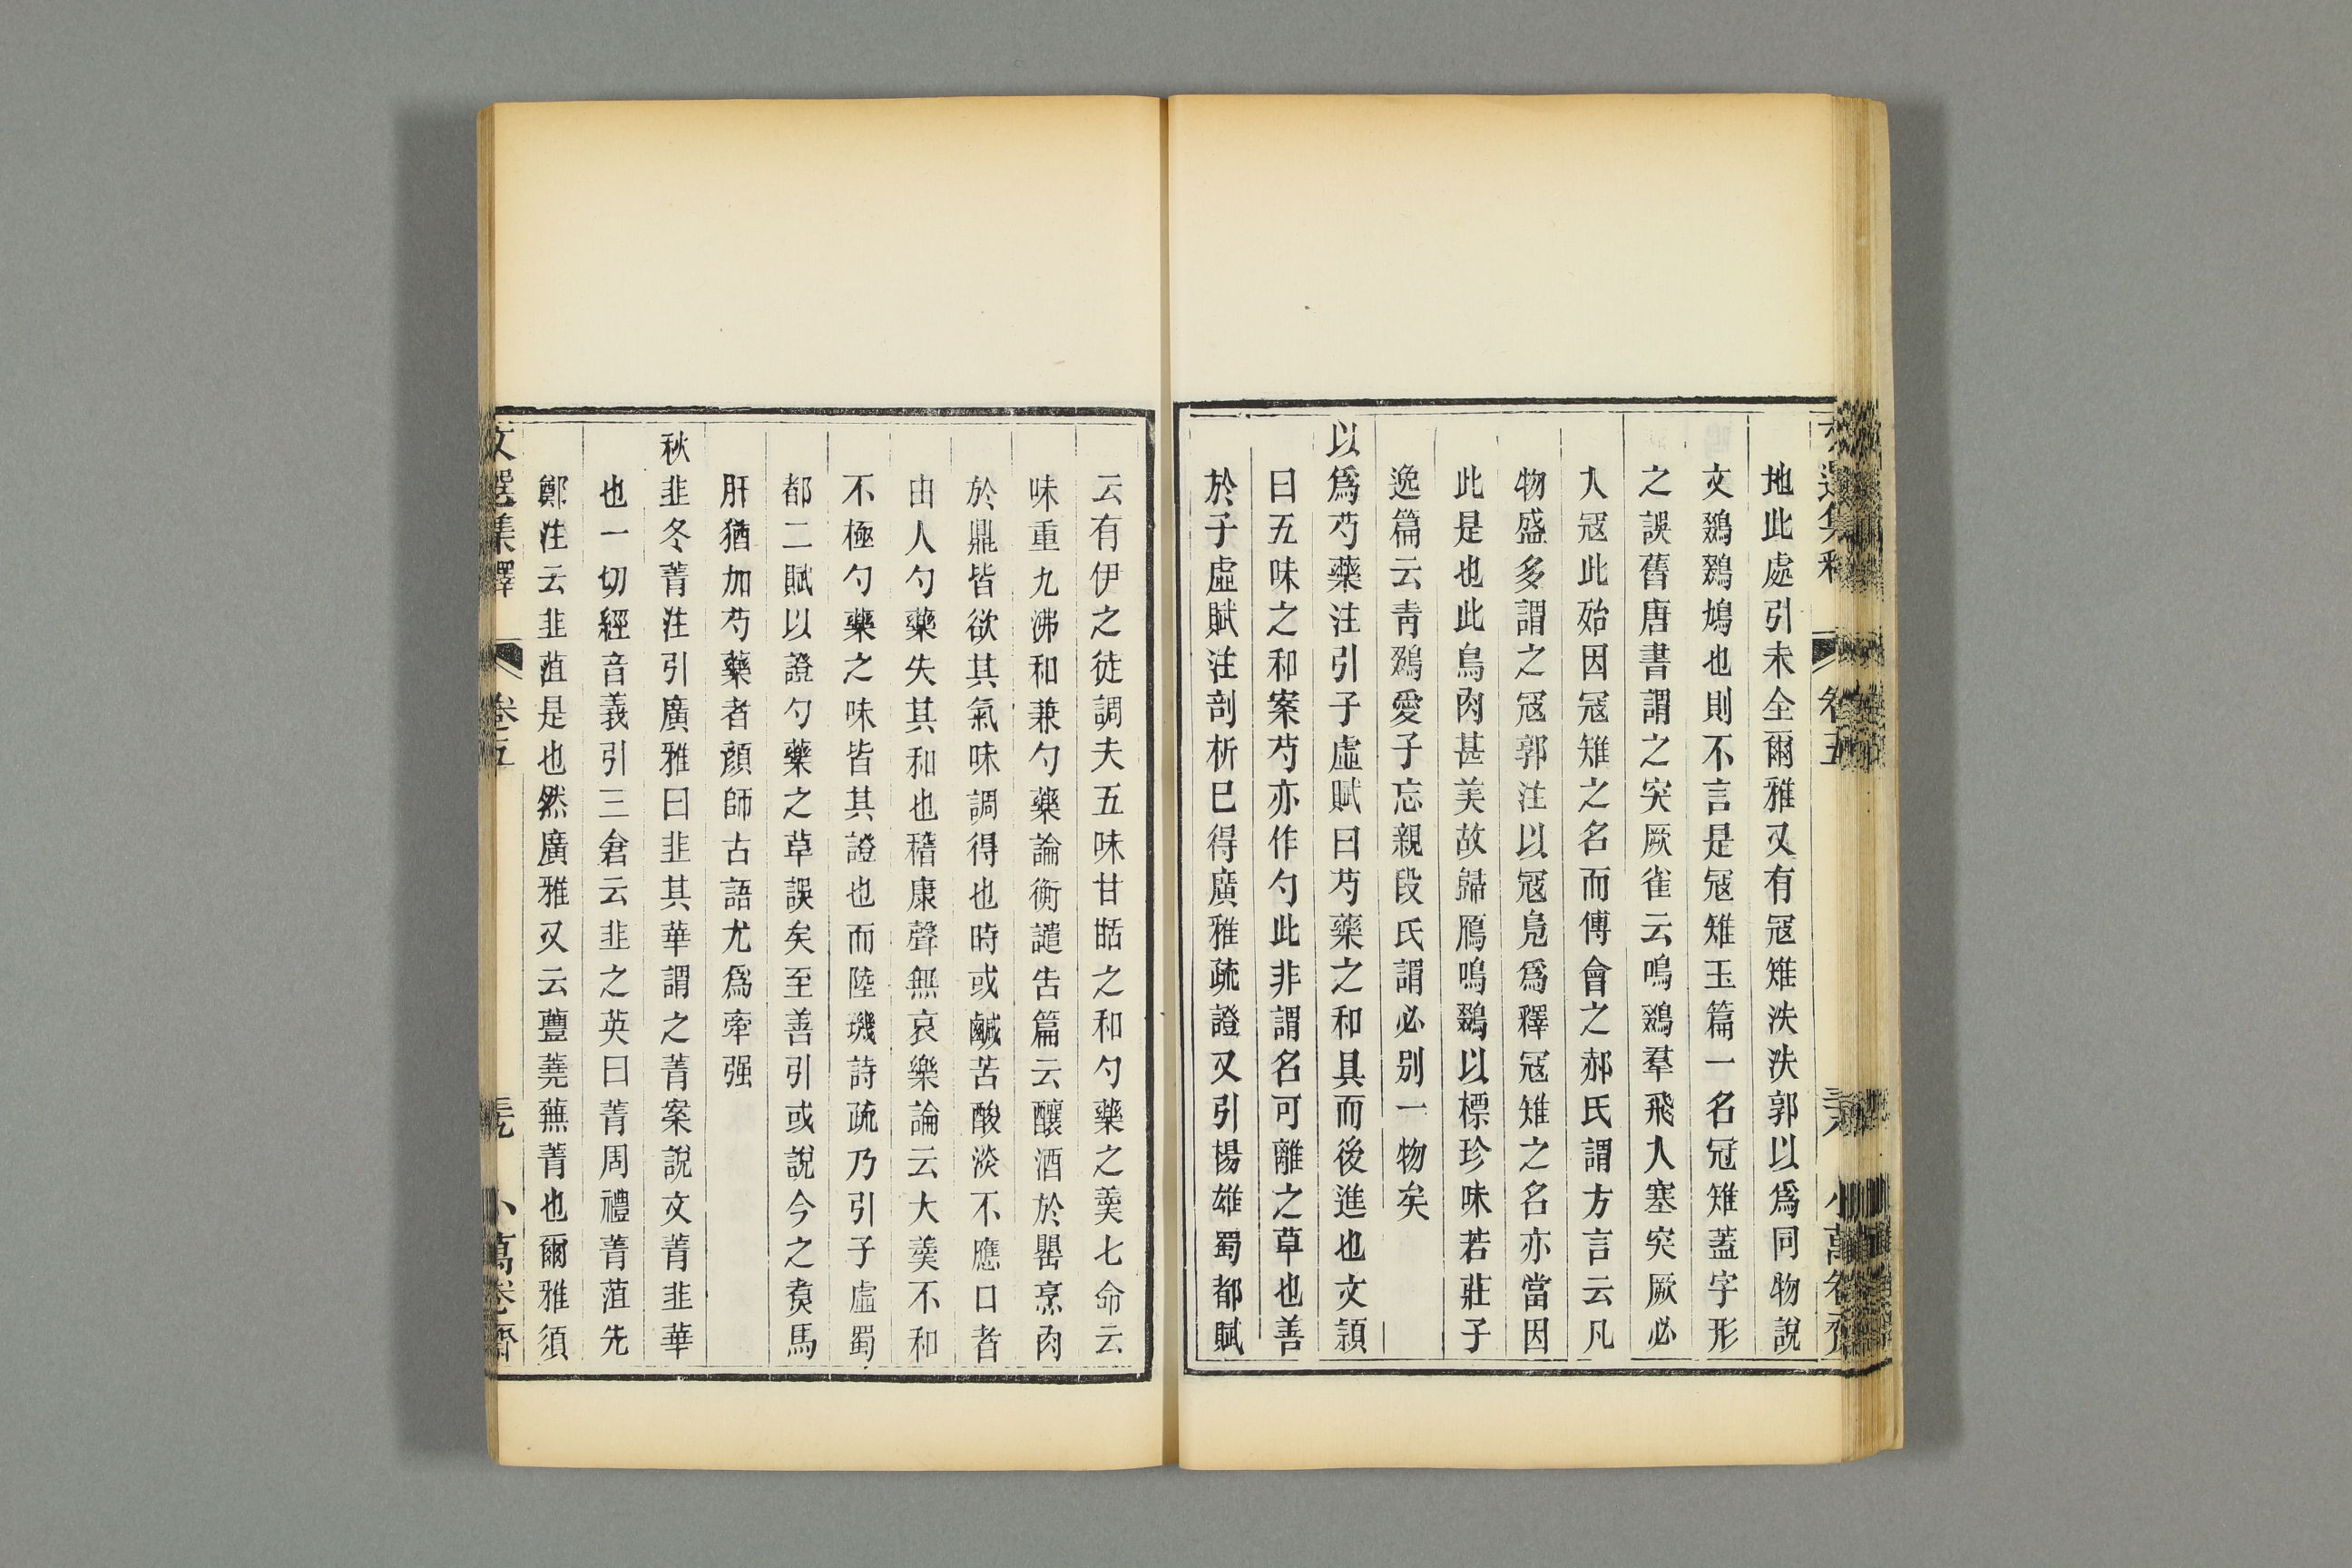 地此處引未全爾雅又有寇雉泆泆郭以爲同物說
文鵽鵽鳩也則不言是寇雉玉篇一名冠雉蓋字形
之誤舊唐書謂之突厥雀云鳴鵽羣飛入塞突厥必
入寇此殆因寇雉之名而傅會之郝氏謂方言云凡
物盛多謂之寇郭注以寇鳧爲釋寇雉之名亦當因
此是也此鳥肉甚美故歸鴈鳴鵽以標珍味若莊子
逸篇云青鵽愛子忘親段氏謂必别一物矣
以爲芍藥注引子虛賦曰芍藥之和具而後進也文潁
曰五味之和案芍亦作勺此非謂名可離之草也善
於子虛賦注剖析已得廣雅疏證又引楊雄蜀都賦
云有伊之徒調夫五味甘甛之和勺藥之羹七命云
味重九沸和兼勺藥論衡譴告篇云釀酒於罌烹肉
於鼎皆欲其氣味調得也時或鹹苦酸淡不應口者
由人勺藥失其和也稽康聲無哀樂論云大羹不和
不極勺藥之味皆其證也而陸璣詩疏乃引子虛蜀
都二賦以證勺藥之草誤矣至善引或說今之煑馬
肝猶加芍藥者顔師古語尤爲牽强
秋韭冬菁注引廣雅曰韭其華謂之菁案說文菁韭華
也一切經音義引三倉云韭之英曰菁周禮菁菹先
鄭注云韭菹是也然廣雅又云蘴蕘蕪菁也爾雅須
文選集釋 卷五 三九 小萬卷齋